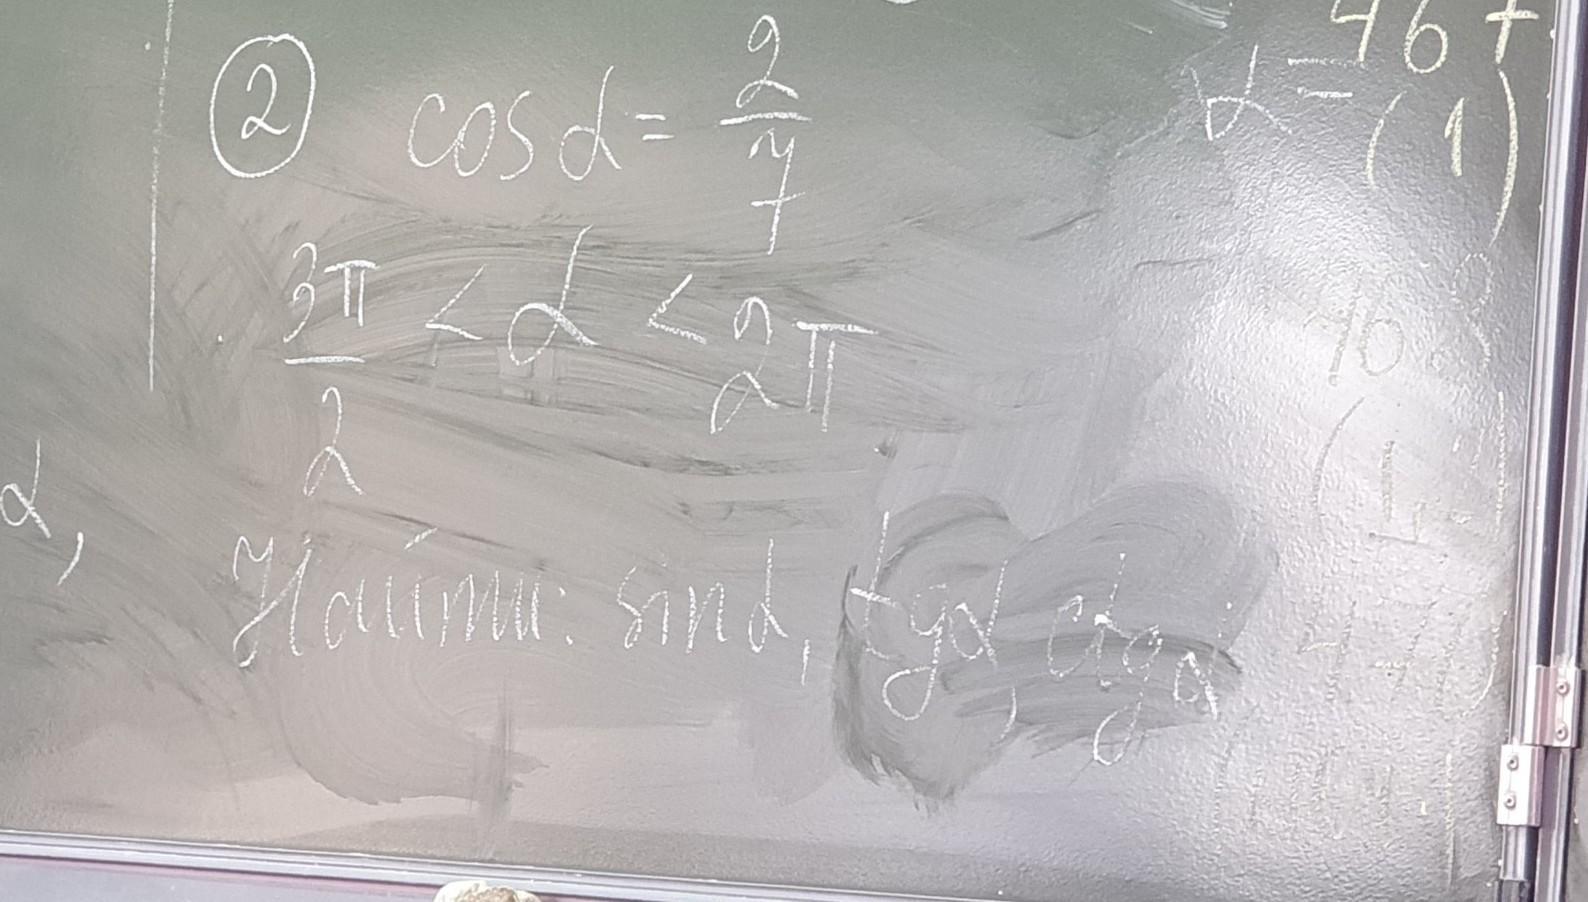 ② cos α = 2/7
3π/2 < α < 2π
Найти: sin α, tg α, ctg α
α,
α =
46+
(1)